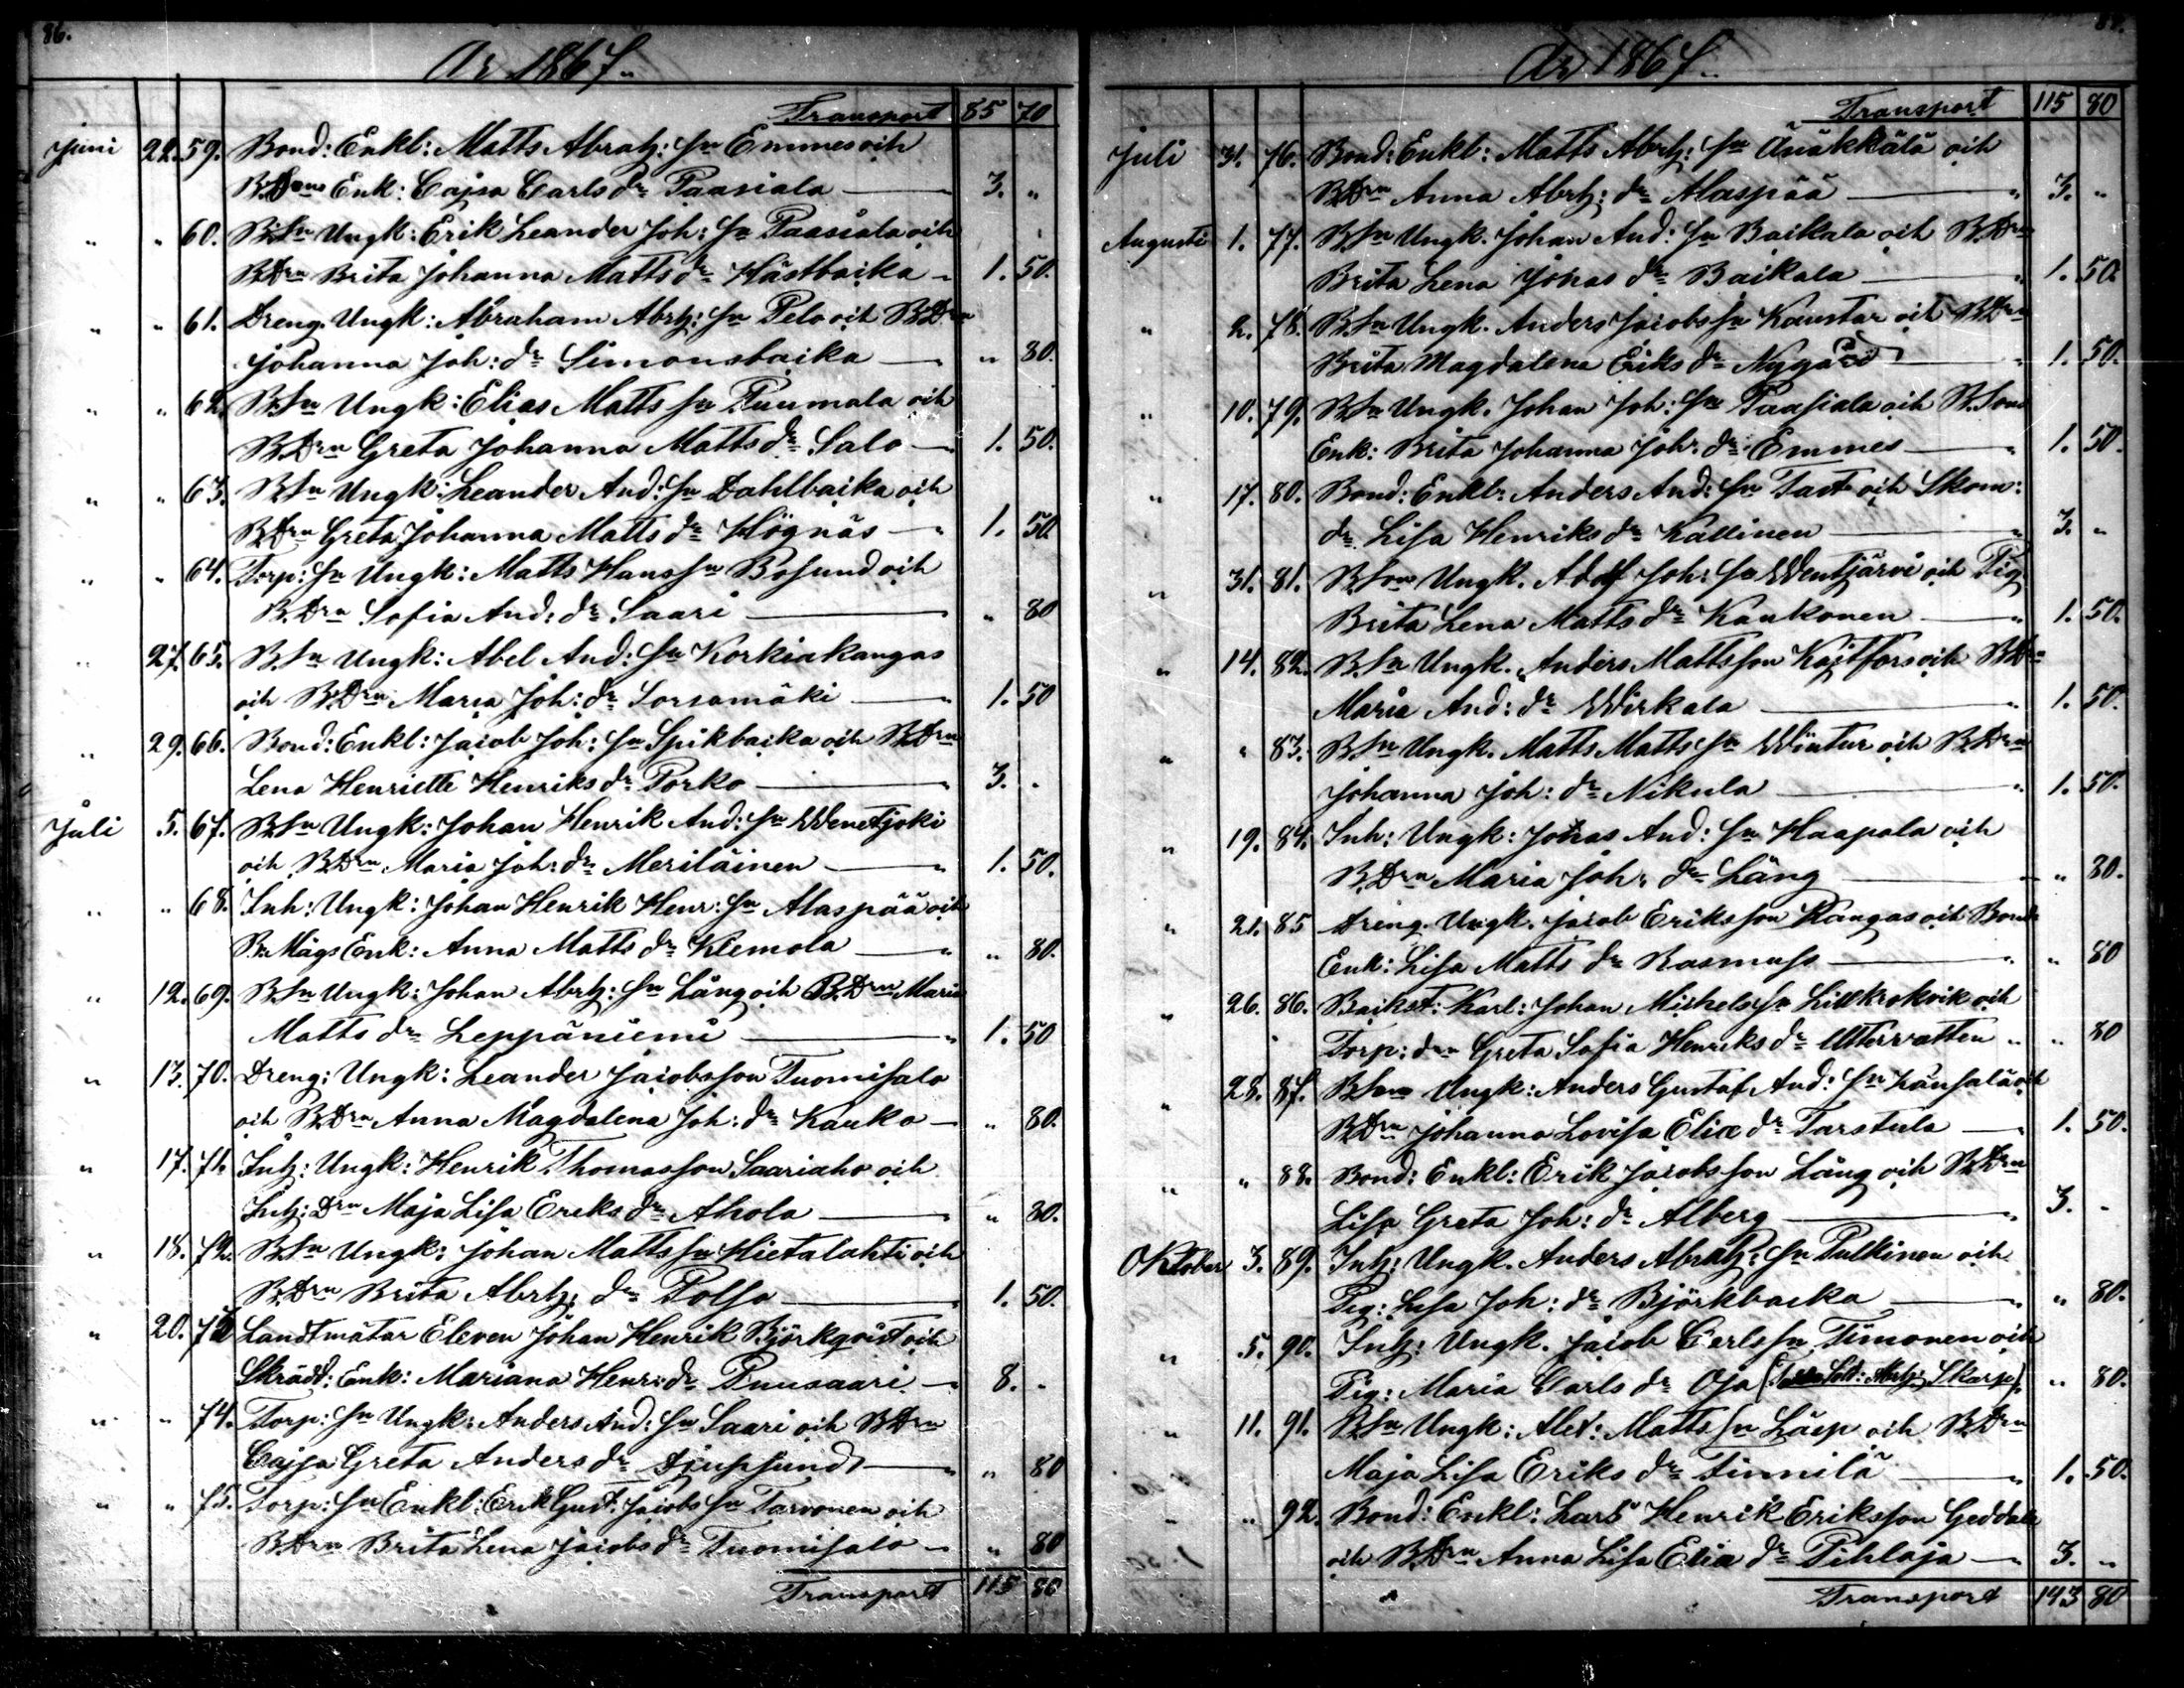 86.
År 1867.
Transport 85 70
Juni 22. 59. Bond: Enkl: Matts Abrah: sn Emmes och
B.Sons Enk: Cajsa Carls dr Paasiala — 3. "
" " 60. B.Sn Ungk: Erik Leander Joh: sn Paasiala och
B.Drn Brita Johanna Matts dr Hästbacka — 1. 50.
" " 61. Dreng. Ungk: Abraham Abrh: sn Pelo och B.Drn
Johanna Joh: dr Simonsbacka — " 80.
" " 62. B.Sn Ungk: Elias Matts sn Puumala och
B.Drn Greta Johanna Matts dr Salo — 1. 50.
" " 63. B.Sn Ungk: Leander And: sn Dahlbacka och
B.Drn Greta Johanna Matts dr Högnäs — 1. 50.
" " 64. Torp: sn Ungk: Matts Hans sn Bosund och
B.Drn Sofia And: dr Saari — " 80
" 27. 65. B.Sn Ungk: Abel And: sn Korkiakangas
och B.Drn Maria Joh: dr Sorsamäki — 1. 50
" 29. 66. Bond: Enkl: Jacob Joh: sn Spikbacka och B.Drn
Lena Henriette Henriks dr Porko — 3. "
Juli 5. 67. B.Sn Ungk: Johan Henrik And: sn Wenetjoki
och B.Drn Maria Joh: dr Meriläinen — 1. 50.
" " 68. Inh: Ungk: Johan Henrik Henr: sn Alaspää och
B. Mågs Enk: Anna Matts dr Klemola — " 80.
" 12. 69. B.Sn Ungk: Johan Abrh: sn Lång och B.Drn Maria
Matts dr Leppäniemi — 1. 50
" 13. 70. Dreng: Ungk: Leander Jacobsson Tuomisalo
och B.Drn Anna Magdalena Joh: dr Kauko — " 80.
" 17. 71. Inh: Ungk: Henrik Thomasson Saariaho och
Inh: Drn Maja Lisa Ericks dr Ahola — " 80.
" 18. 72. B.Sn Ungk: Johan Matts sn Hietalahti och
B.Drn Brita Abrh: dr Polso — 1. 50.
" 20. 73 Landtmätar Eleven Johan Henrik Björkqvist och
Skrädd: Enk: Mariana Henr: dr Puusaari — 8. "
" " 74. Torp: sn Ungk: Anders And: sn Saari och B.Drn
Cajsa Greta Anders dr Djupsund — " 80
" " 75. Torp: sn Enkl: Erik Gust. Jacobs sn Tarvonen och
B.Drn Brita Lena Jacobs dr Tuomisalo — " 80
Transport 115 80
87.
År 1867.
Transport 115 80
Juli 31. 76. Bond: Enkl: Matts Abrh: sn Änäkkälä och
B.Drn Anna Abrh: dr Alaspää — 3. "
Augusti 1. 77. B.Sn Ungk. Johan And: sn Backala och B.Drn
Brita Lena Jonas dr Backala — 1. 50.
" 2. 78. B.Sn Ungk. Anders Jacobs sn Kaustar och B.Drn
Brita Magdalena Eriks dr Nygård — 1. 50.
" 10. 79. B.Sn Ungk. Johan Joh: sn Paasiala och B.Sons
Enk: Brita Johanna Joh: dr Emmes — 1. 50.
" 17. 80. Bond: Enkl: Anders And: sn Tast och Skom:
dr Lisa Henriks dr Kallinen — 3. "
" 31. 81. B.Sons Ungk. Adolf Joh: sn Wentjärvi och Pig
Brita Lena Matts dr Kaukonen — 1. 50.
" 14. 82. B.Sn Ungk. Anders Mattsson Kojtfors och B.Drn
Maria And: dr Wirkala — 1. 50.
" " 83. B.Sn Ungk. Matts Matts sn Wintur och B.Drn
Johanna Joh: dr Nikula — 1. 50.
" 19. 84. Inh: Ungk: Jonas And: sn Haapala och
B.Drn Maria Joh: dr Lång — " 80.
" 21. 85 Dreng. Ungk. Jacob Eriksson Kangas och Bond:
Enk: Lisa Matts dr Rasmuss — " 80
" 26. 86. Backst: Karl: Johan Michels sn Lillkrokvik och
Torp: drn Greta Sofia Henriks dr Uttervatten " 80
" 28. 87. B.Sons Ungk: Anders Gustaf And: sn Känsälä och
B.Drn Johanna Lovisa Eliæ dr Tastula — 1. 50.
" " 88. Bond: Enkl: Erik Jacobsson Lång och B.Drn
Lisa Greta Joh: dr Alberg — 3. "
Oktober 3. 89. Inh: Ungk. Anders Abrah: sn Pulkinen och
Pig: Lisa Joh: dr Björkbacka — " 80.
" 5. 90. Inh: Ungk. Jacob Carls sn Timonen och
Pig: Maria Carls dr Oja ( Sold: Abrh: Skarp). " 80.
" 11. 91. B.Sn Ungk: Alex: Matts sn Läsp och B.Drn
Maja Lisa Eriks dr Tinnilä — 1. 50.
" " 92. Bond: Enkl: Lars Henrik Eriksson Geddala
och B.Drn Anna Lisa Eliæ dr Pihlaja — 3. "
Transport 143 80